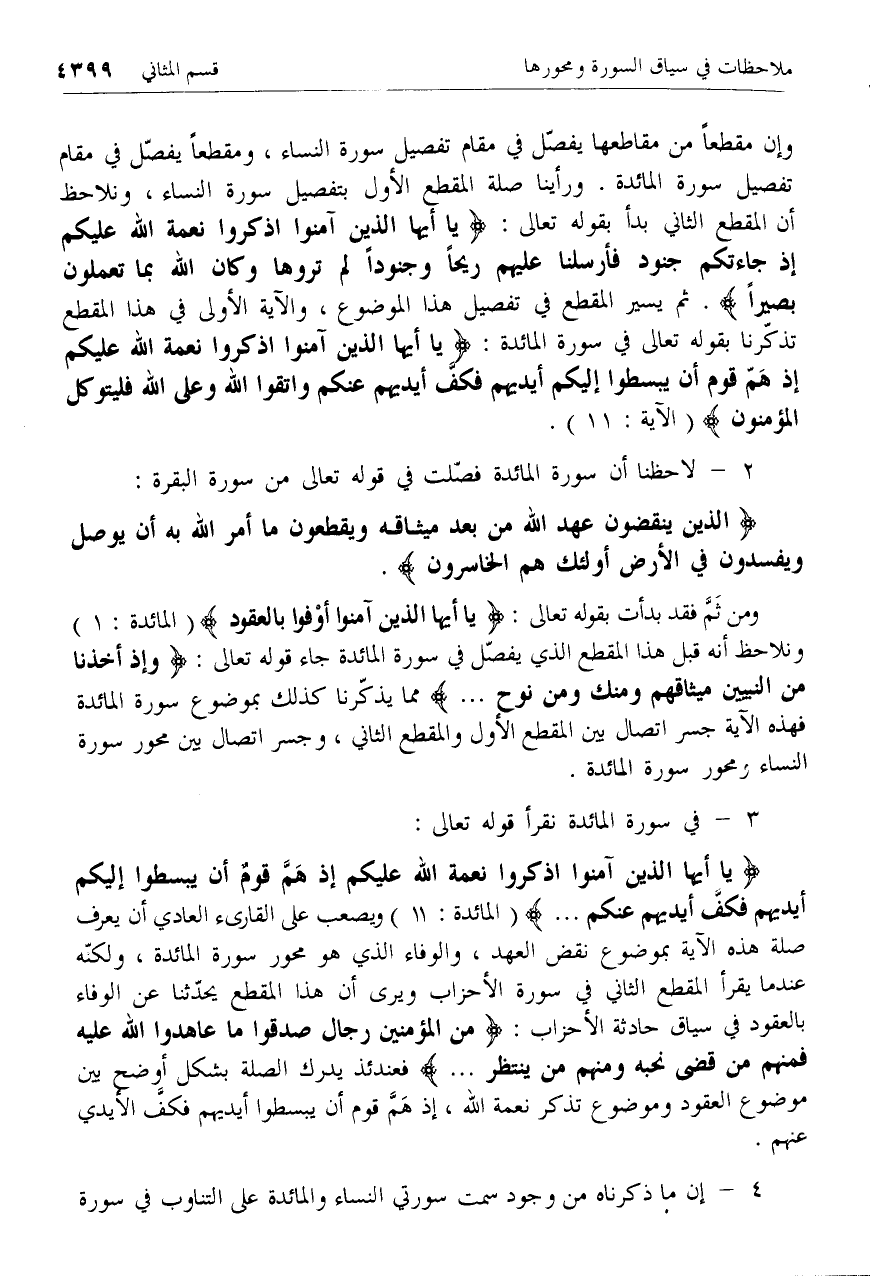 ملاحظات في سياق السورة ومحورها قسم المثاني ٤٣٩٩
وإن مقطعاً من مقاطعها يفصّل في مقام تفصيل سورة النساء ، ومقطعاً يفصّل في مقام
تفصيل سورة المائدة . ورأينا صلة المقطع الأول بتفصيل سورة النساء ، ونلاحظ
أن المقطع الثاني بدأ بقوله تعالى : ﴿ يا أيها الذين آمنوا اذكروا نعمة الله عليكم
إذ جاءتكم جنود فأرسلنا عليهم ريحاً وجنوداً لم تروها وكان الله بما تعملون
بصيراً ﴾ . ثم يسير المقطع في تفصيل هذا الموضوع ، والآية الأولى في هذا المقطع
تذكّرنا بقوله تعالى في سورة المائدة : ﴿ يا أيها الذين آمنوا اذكروا نعمة الله عليكم
إذ هَمّ قوم أن يبسطوا إليكم أيديهم فكفَّ أيديهم عنكم واتقوا الله وعلى الله فليتوكل
المؤمنون ﴾ ( الآية : ١١ ) .
٢ – لاحظنا أن سورة المائدة فصّلت في قوله تعالى من سورة البقرة :
﴿ الذين ينقضون عهد الله من بعد ميثاقه ويقطعون ما أمر الله به أن يوصل
ويفسدون في الأرض أولئك هم الخاسرون ﴾ .
ومن ثَمَّ فقد بدأت بقوله تعالى : ﴿ يا أيها الذين آمنوا أوْفوا بالعقود ﴾ ( المائدة : ١ )
ونلاحظ أنه قبل هذا المقطع الذي يفصّل في سورة المائدة جاء قوله تعالى : ﴿ وإذ أخذنا
من النبيين ميثاقهم ومنك ومن نوح ... ﴾ مما يذكّرنا كذلك بموضوع سورة المائدة
فهذه الآية جسر اتصال بين المقطع الأول والمقطع الثاني ، وجسر اتصال بين محور سورة
النساء ومحور سورة المائدة .
٣ – في سورة المائدة نقرأ قوله تعالى :
﴿ يا أيها الذين آمنوا اذكروا نعمة الله عليكم إذ هَمَّ قومٌ أن يبسطوا إليكم
أيديهم فكفَّ أيديهم عنكم ... ﴾ ( المائدة : ١١ ) ويصعب على القارىء العادي أن يعرف
صلة هذه الآية بموضوع نقض العهد ، والوفاء الذي هو محور سورة المائدة ، ولكنّه
عندما يقرأ المقطع الثاني في سورة الأحزاب ويرى أن هذا المقطع يحدّثنا عن الوفاء
بالعقود في سياق حادثة الأحزاب : ﴿ من المؤمنين رجال صدقوا ما عاهدوا الله عليه
فمنهم من قضى نحبه ومنهم من ينتظر ... ﴾ فعندئذ يدرك الصلة بشكل أوضح بين
موضوع العقود وموضوع تذكر نعمة الله ، إذ هَمَّ قوم أن يبسطوا أيديهم فكفَّ الأيدي
عنهم .
٤ – إن ما ذكرناه من وجود سمت سورتي النساء والمائدة على التناوب في سورة